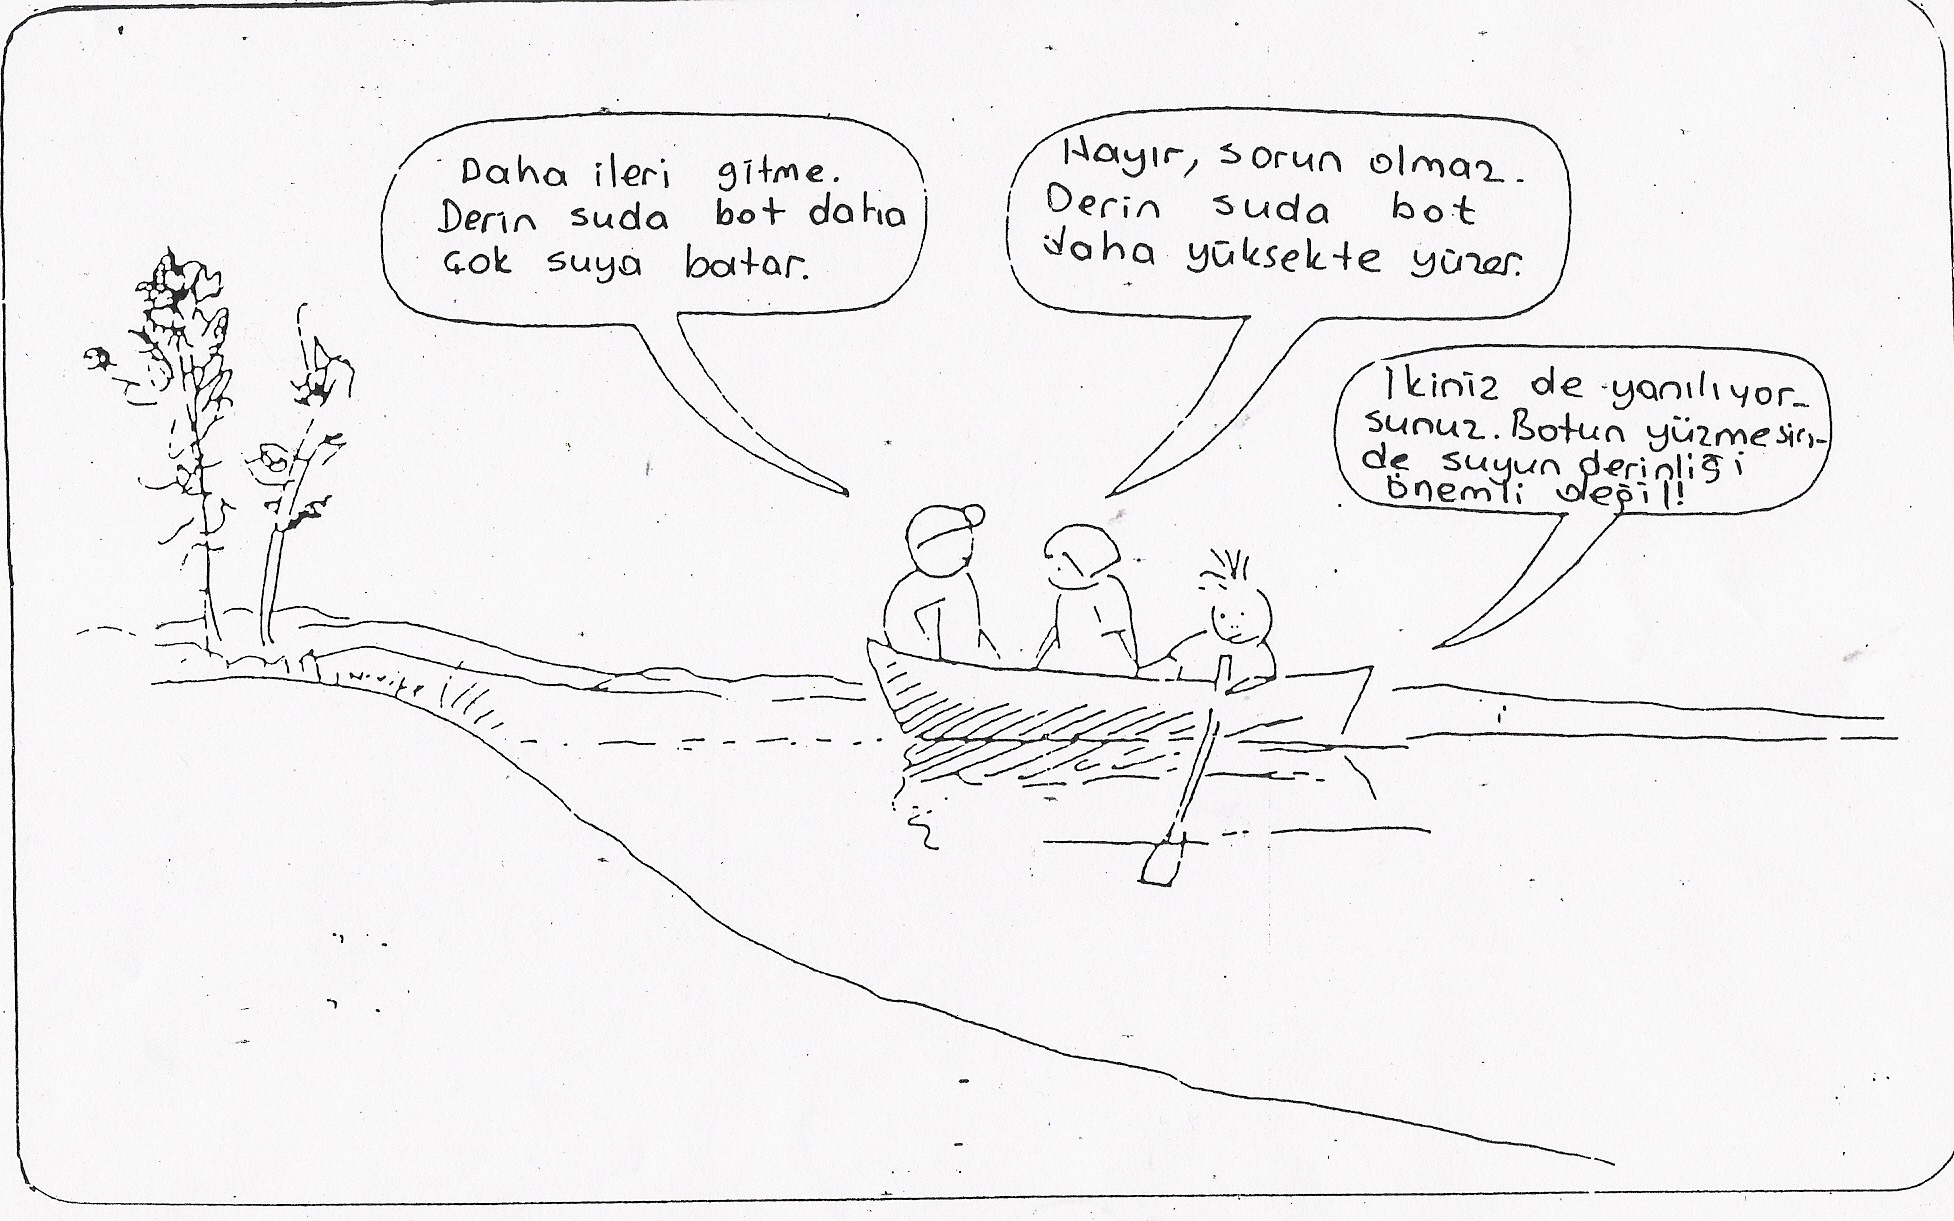 Daha ileri gitme.
Derin suda bot daha
çok suya batar.
Hayır, sorun olmaz.
Derin suda bot
daha yüksekte yüzer.
İkiniz de yanılıyor-
sunuz. Botun yüzmesin-
de suyun derinliği
önemli değil!